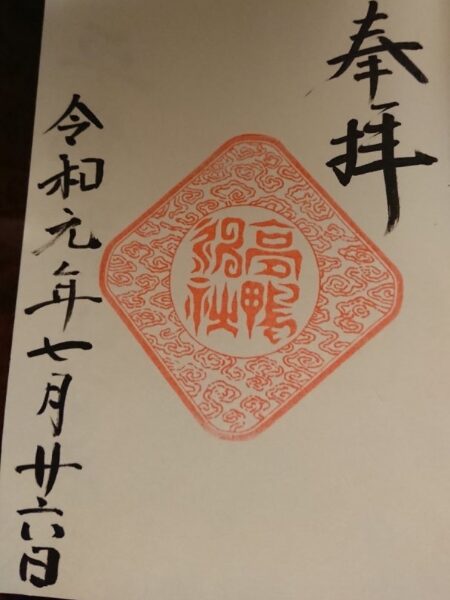 奉拝
高鴨
神社
令和元年七月廿六日